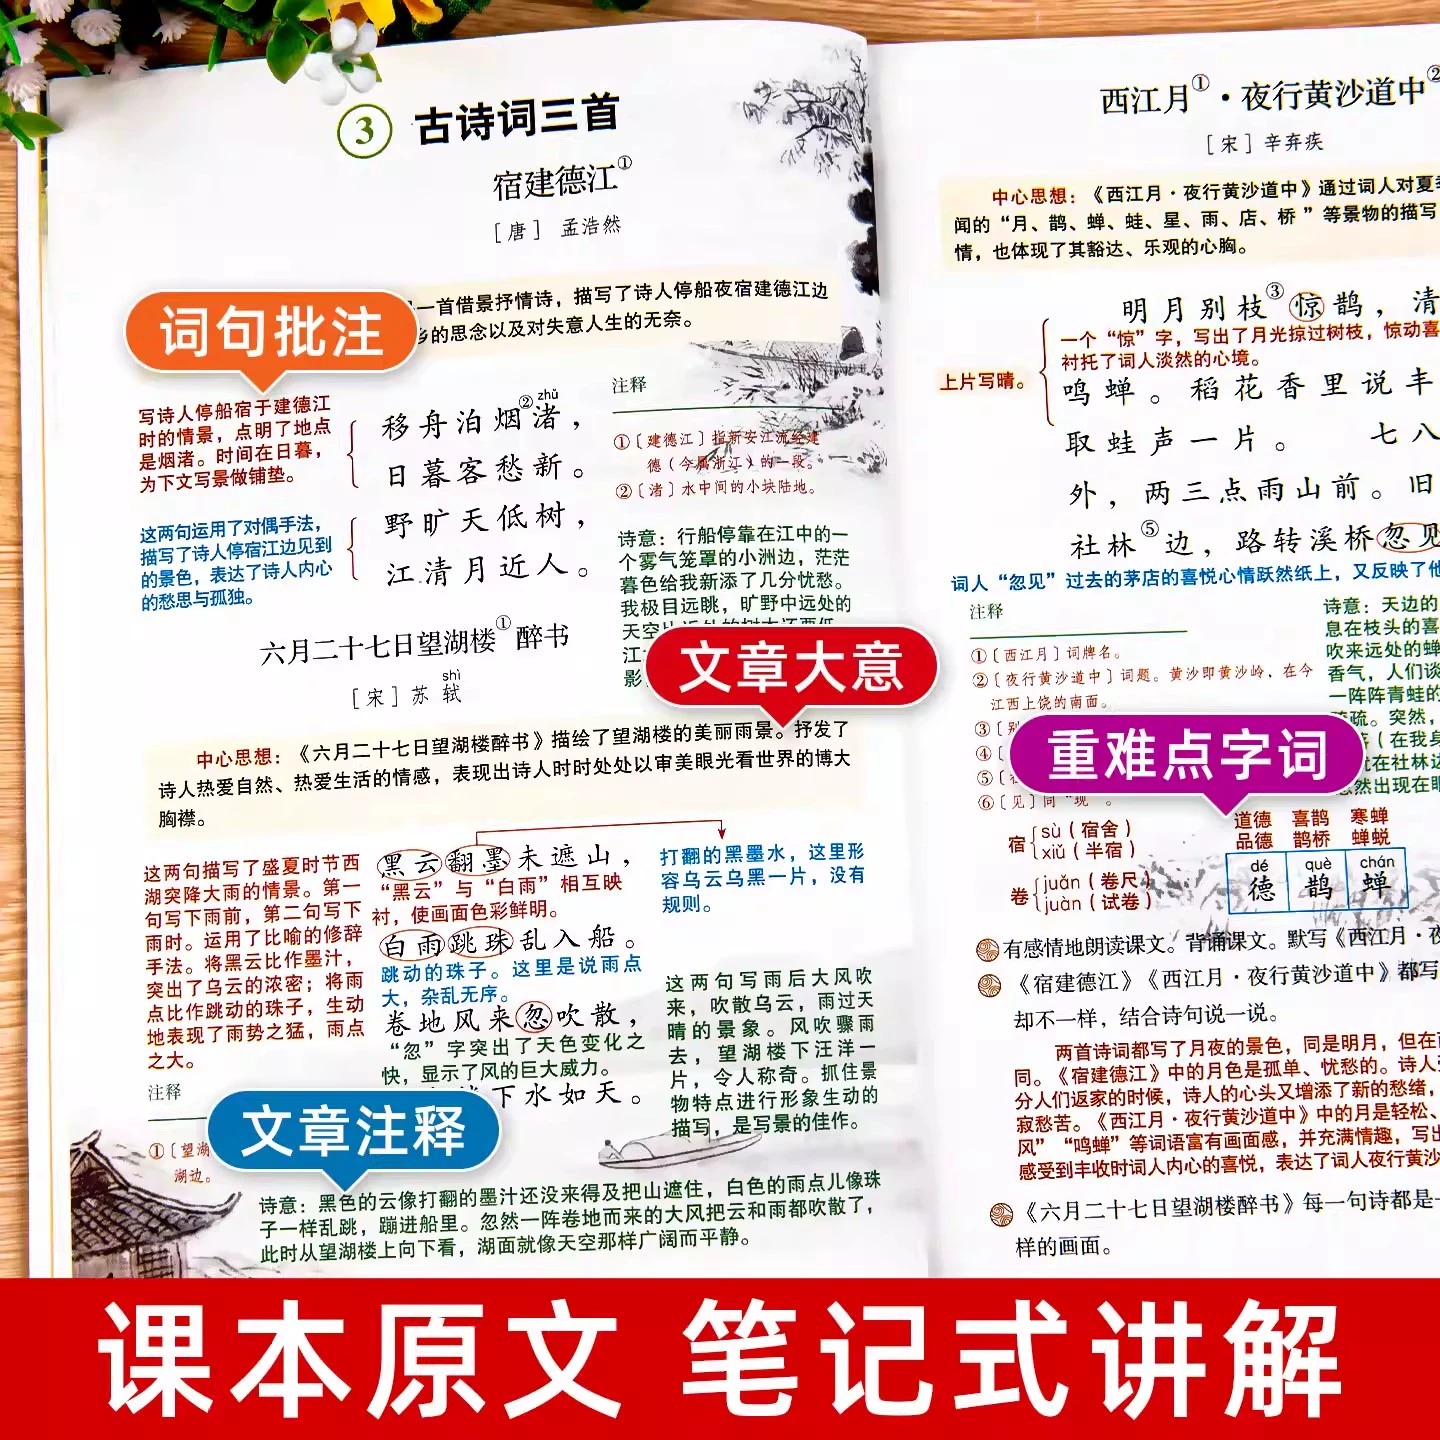 3 古诗词三首
宿建德江①
［唐］ 孟浩然
一首借景抒情诗，描写了诗人停船夜宿建德江边
乡的思念以及对失意人生的无奈。
词句批注
写诗人停船宿于建德江
时的情景，点明了地点
是烟渚。时间在日暮，
为下文写景做铺垫。
这两句运用了对偶手法，
描写了诗人停宿江边见到
的景色，表达了诗人内心
的愁思与孤独。
zhǔ
移舟泊烟②渚，
日暮客愁新。
野旷天低树，
江清月近人。
注释
①〔建德江〕指新安江流经建
德（今属浙江）的一段。
②〔渚〕水中间的小块陆地。
诗意：行船停靠在江中的一
个雾气笼罩的小洲边，茫茫
暮色给我新添了几分忧愁。
我极目远眺，旷野中远处的
天空比近处的树木还要低，
江
影
文章大意
六月二十七日望湖楼①醉书
shì
［宋］苏 轼
中心思想：《六月二十七日望湖楼醉书》描绘了望湖楼的美丽雨景。抒发了
诗人热爱自然、热爱生活的情感，表现出诗人时时处处以审美眼光看世界的博大
胸襟。
这两句描写了盛夏时节西
湖突降大雨的情景。第一
句写下雨前，第二句写下
雨时。运用了比喻的修辞
手法。将黑云比作墨汁，
突出了乌云的浓密；将雨
点比作跳动的珠子，生动
地表现了雨势之猛，雨点
之大。
黑云翻墨未遮山，
“黑云”与“白雨”相互映
衬，使画面色彩鲜明。
白雨跳珠乱入船。
跳动的珠子。这里是说雨点
大，杂乱无序。
卷地风来忽吹散，
“忽”字突出了天色变化之
快，显示了风的巨大威力。
下水如天。
打翻的黑墨水，这里形
容乌云乌黑一片，没有
规则。
这两句写雨后大风吹
来，吹散乌云，雨过天
晴的景象。风吹骤雨
去，望湖楼下汪洋一
片，令人称奇。抓住景
物特点进行形象生动的
描写，是写景的佳作。
注释
①〔望湖
湖边。
文章注释
诗意：黑色的云像打翻的墨汁还没来得及把山遮住，白色的雨点儿像珠
子一样乱跳，蹦进船里。忽然一阵卷地而来的大风把云和雨都吹散了，
此时从望湖楼上向下看，湖面就像天空那样广阔而平静。
西江月①·夜行黄沙道中②
［宋］辛弃疾
中心思想：《西江月·夜行黄沙道中》通过词人对夏
闻的“月、鹊、蝉、蛙、星、雨、店、桥 ”等景物的描写
情，也体现了其豁达、乐观的心胸。
上片写晴。
明月别枝③惊鹊，清
一个“惊”字，写出了月光掠过树枝，惊动喜
衬托了词人淡然的心境。
鸣蝉。稻花香里说丰
取蛙声一片。 七八
外，两三点雨山前。旧
社林⑤边，路转溪桥忽见
词人“忽见”过去的茅店的喜悦心情跃然纸上，又反映了他
注释
①〔西江月〕词牌名。
②〔夜行黄沙道中〕词题。黄沙即黄沙岭，在今
江西上饶的南面。
③〔别
④〔
⑤〔
⑥〔见〕同“现”。
诗意：天边的
息在枝头的喜
吹来远处的蝉
香气，人们谈
一阵阵青蛙的
疏。突然，
（在我身
就在社林边
忽然出现在眼
重难点字词
宿 sù（宿舍）
xiǔ（半宿）
卷 juǎn（卷尺）
juàn（试卷）
道德 喜鹊 寒蝉
品德 鹊桥 蝉蜕
dé què chán
德 鹊 蝉
有感情地朗读课文。背诵课文。默写《西江月·夜
《宿建德江》《西江月·夜行黄沙道中》都写
却不一样，结合诗句说一说。
两首诗词都写了月夜的景色，同是明月，但在
同。《宿建德江》中的月色是孤单、忧愁的。诗人
分人们返家的时候，诗人的心头又增添了新的愁绪，
寂愁苦。《西江月·夜行黄沙道中》中的月是轻松、
风”“鸣蝉”等词语富有画面感，并充满情趣，写出
感受到丰收时词人内心的喜悦，表达了词人夜行黄沙
《六月二十七日望湖楼醉书》每一句诗都是一
样的画面。
课本原文 笔记式讲解